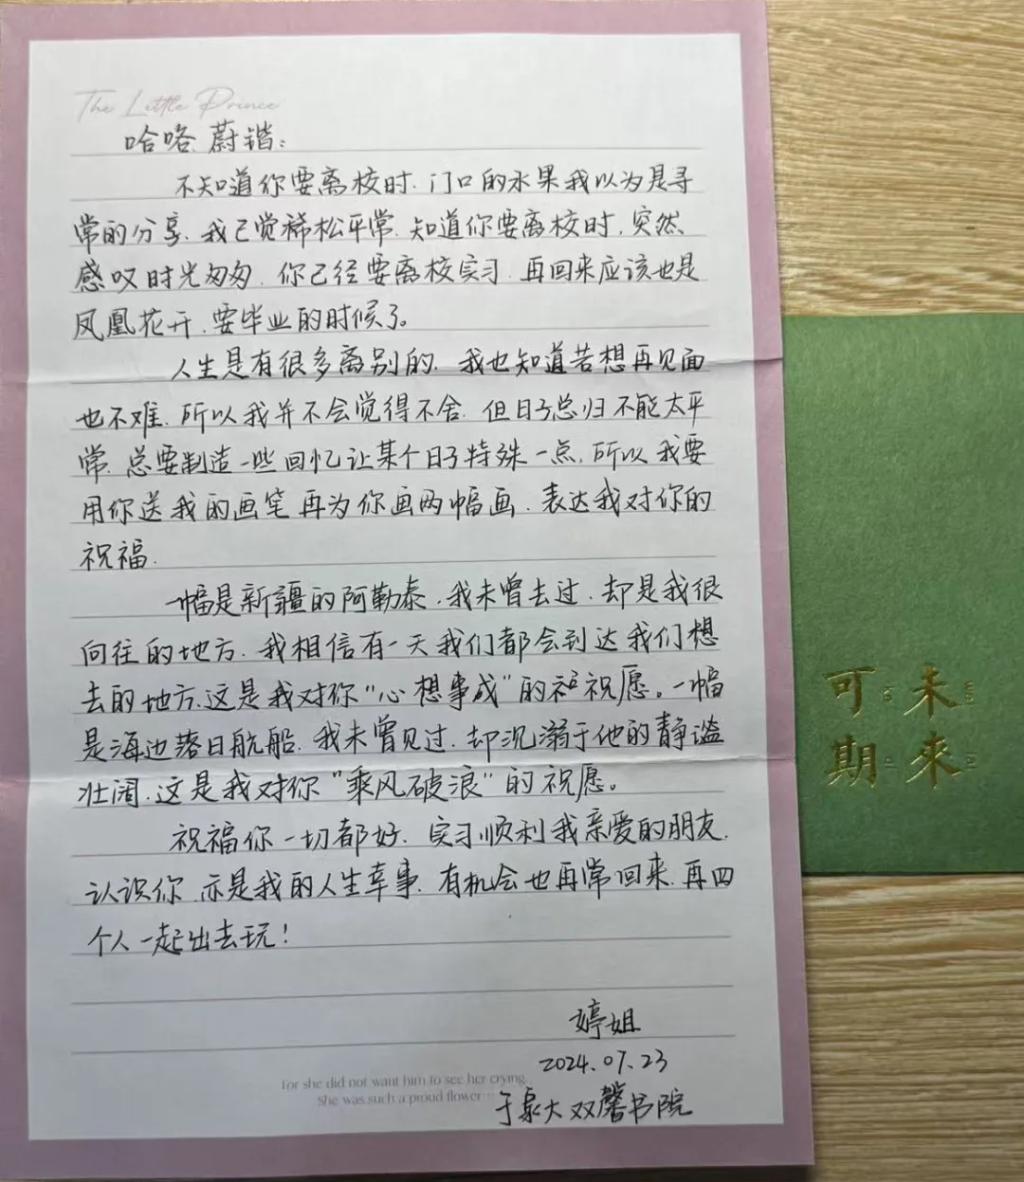 The Little Prince
哈咯 蔚谐:
不知道你要离校时.门口的水果我以为是寻
常的分享.我已觉稀松平常.知道你要离校时.突然
感叹时光匆匆.你已经要离校实习.再回来应该也是
凤凰花开.要毕业的时候了。
人生是有很多离别的.我也知道若想再见面
也不难.所以我并不会觉得不舍.但日子总归不能太平
常.总要制造一些回忆让某个日子特殊一点.所以我要
用你送我的画笔再为你画两幅画.表达我对你的
祝福.
一幅是新疆的阿勒泰.我未曾去过.却是我很
向往的地方.我相信有一天我们都会到达我们想
去的地方.这是我对你“心想事成”的祝愿。一幅
是海边落日航船.我未曾见过.却沉溺于他的静谧
壮阔.这是我对你“乘风破浪”的祝愿。
祝福你一切都好.实习顺利我亲爱的朋友.
认识你.亦是我的人生幸事.有机会也再常回来.再四
个人一起出去玩!
婷姐
2024.07.23
于泉大双馨书院
for she did not want him to see her crying.
She was such a proud flower...
未来
可期